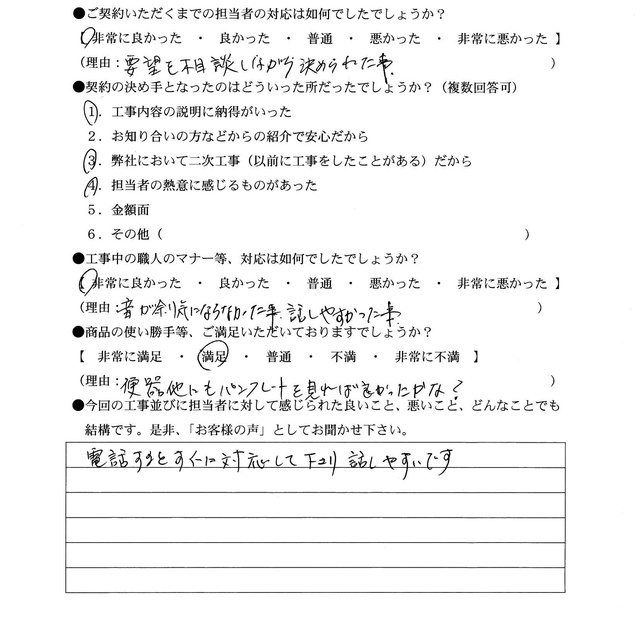 ●ご契約いただくまでの担当者の対応は如何でしたでしょうか？
【 非常に良かった ・ 良かった ・ 普通 ・ 悪かった ・ 非常に悪かった 】
(理由: 要望を相談しながら決められた事。 )
●契約の決め手となったのはどういった所だったでしょうか？（複数回答可）
1．工事内容の説明に納得がいった
2．お知り合いの方などからの紹介で安心だから
3．弊社において二次工事（以前に工事をしたことがある）だから
4．担当者の熱意に感じるものがあった
5．金額面
6．その他（ ）
●工事中の職人のマナー等、対応は如何でしたでしょうか？
【 非常に良かった ・ 良かった ・ 普通 ・ 悪かった ・ 非常に悪かった 】
(理由: 音が余り気にならなかった事。話しやすかった事。 )
●商品の使い勝手等、ご満足いただいておりますでしょうか？
【 非常に満足 ・ 満足 ・ 普通 ・ 不満 ・ 非常に不満 】
(理由: 便器他にもパンフレートを見れば良かったかな？ )
●今回の工事並びに担当者に対して感じられた良いこと、悪いこと、どんなことでも
結構です。是非、「お客様の声」としてお聞かせ下さい。
電話するとすぐに対応して下さり 話しやすいです